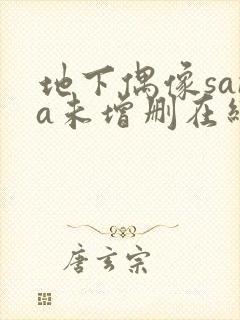 地下偶像sa
a未增删在
唐玄宗